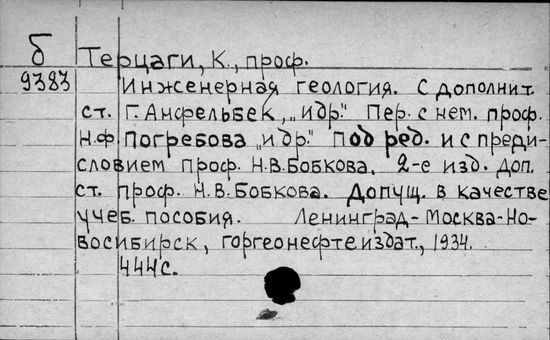 б Терцаги, К., проф.
9383 Инженерная геология. С дополнит.
ст. Г. Ансрельбек, „и др." Пер. с нем. проф.
Н.Ф. Погребова „и др." Под ред. и с преди-
словием проф. Н.В. Бобкова. 2-е изд. Доп.
ст. проф. Н.В. Бобкова. Допущ. в качестве
учеб. пособия. Ленинград-Москва-Но-
восибирск, горгеонефтеиздат., 1934.
444с.